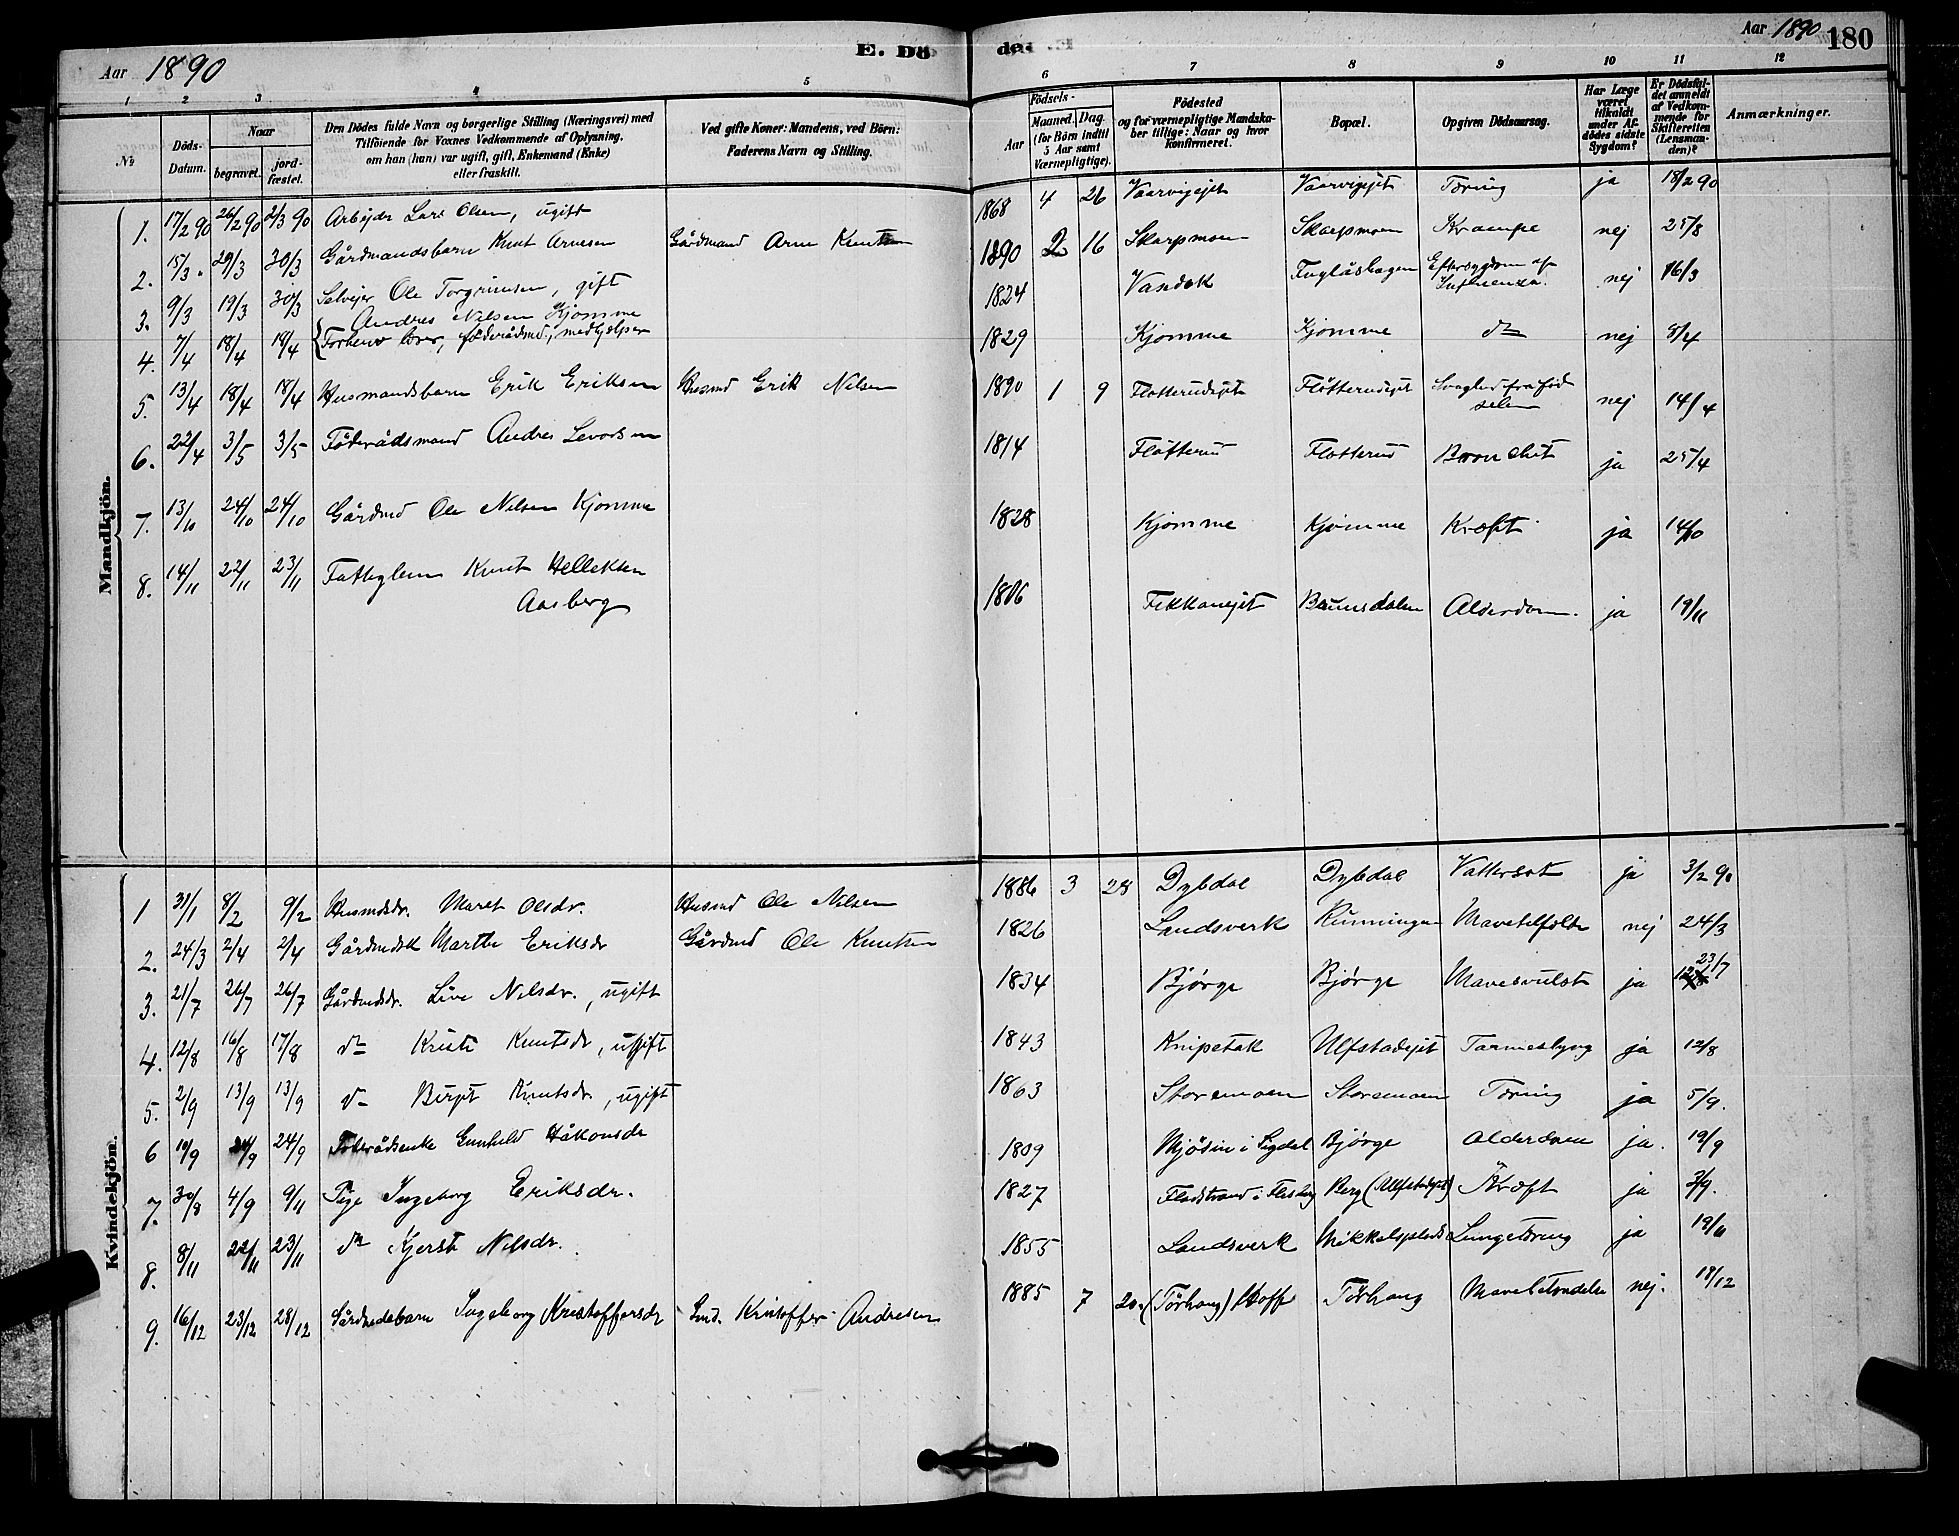 Aar 1890
E. Dö
de
Aar 1890
180
1 2 3 4 5 6 7 8 9 10 11 12
No
Döds-Datum.
Naar
begravet.
jordfæstet.
Den Dödes fulde Navn og borgerlige Stilling (Næringsvei) med
Tilföiende for Voxnes Vedkommende af Oplysning,
om han (hun) var ugift, gift, Enkemand (Enke)
eller fraskilt.
Ved gifte Koner: Mandens, ved Börn:
Faderens Navn og Stilling.
Födsels-
Aar
Maaned. Dag.
(for Börn indtil
5 Aar samt
Værnepligtige).
Födested
og for værnepligtige Mandska-
ber tillige: Naar og hvor
konfirmeret.
Bopæl.
Opgiven Dödsaarsag.
Har Læge
været
tilkaldt
under Af-
dödes sidste
Sygdom?
Er Dödsfal-
det anmeldt
af Vedkom-
mende for
Skifteretten
(Lensman-
den)?
Anmærkninger.
Mandkjön.
1. 17/2 90 26/2 90 2/3 90 Arbejdr Lars Olsen, ugift 1868 4 26 Vaarvigejet Vaarvigejet Tæring ja 18/2 90
2. 15/3 29/3 30/3 Gårdmandsbarn Knut Arnesen Gårdmand Arne Knutsen 1890 2 16 Skarpmoen Skarpmoen Krampe nej 25/8
3. 9/3 19/3 30/3 Selvejer Ole Torgrimsen, gift 1824 Vandok Fuglåshagen Eftersygdom af Influenza. nej 16/3
4. 7/4 18/4 18/4 Andres Nilsen Kjømme
Forhenv lærer, föderådmd, medhjelper 1829 Kjømme Kjømme do nej 8/4
5. 13/4 18/4 18/4 Husmandsbarn Erik Eriksen Husmd Erik Nilsen 1890 1 9 Fløtterudejet Fløtterudejet Svaghed fra födselen nej 14/4
6. 22/4 3/5 3/5 Föderådsmand Andres Levorsen 1814 Fløtterud Fløtterud Bronchit ja 25/4
7. 13/10 24/10 24/10 Gårdmd Ole Nilsen Kjømme 1828 Kjømme Kjømme Kræft ja 14/10
8. 14/11 22/11 23/11 Fattiglem Knut Helleksen
Aasberg 1806 Fekkanejet Bruunsdalen Alderdom. ja 19/11
Kvindekjön.
1 31/1 8/2 9/2 Husmdsdr. Maret Olsdr. Husmd Ole Nilsen 1886 3 28 Dybdal Dybdal Vattersot ja 3/2 90
2. 24/3 2/4 2/4 Gårdmdsk Marthe Eriksdr Gårdmd Ole Knutsen 1826 Landsverk Runningen Mavetilfælde nej 24/3
3. 21/7 26/7 26/7 Gårdmdsdr. Live Nilsdr., ugift 1834 Bjørge Bjørge Mavesvulst ja 23/7
4. 12/8 16/8 17/8 do Kristi Knutsdr, ugift 1843 Knipetak Ulfstadejet Tarmeslyng ja 12/8
5. 2/9 13/9 13/9 do Birgit Knutsdr, ugift 1863 Storemoen Storemoen Tæring ja 5/9.
6 10/9 24/9 24/9 Föderådsenke Gunhild Håkonsdr 1809 Mjösin i Sigdal Bjørge Alderdom ja. 19/9
7. 30/8 4/9 9/11 Pige Ingeborg Eriksdr. 1827 Fladstrand i Flesberg Berg (Ulfstadejet) Kræft ja 3/9.
8. 8/11 22/11 23/11 do Kjersti Nilsdr. 1855 Landsverk Mikkelsplads Lungetæring ja 19/11
9. 16/12 23/12 28/12 Gårdmdsbarn Ingeborg Kristoffersdr Gmd. Kristoffer Andresen 1885 7 20 (Törhaug) Hoff Törhaug Mavebetændelse nej. 18/12